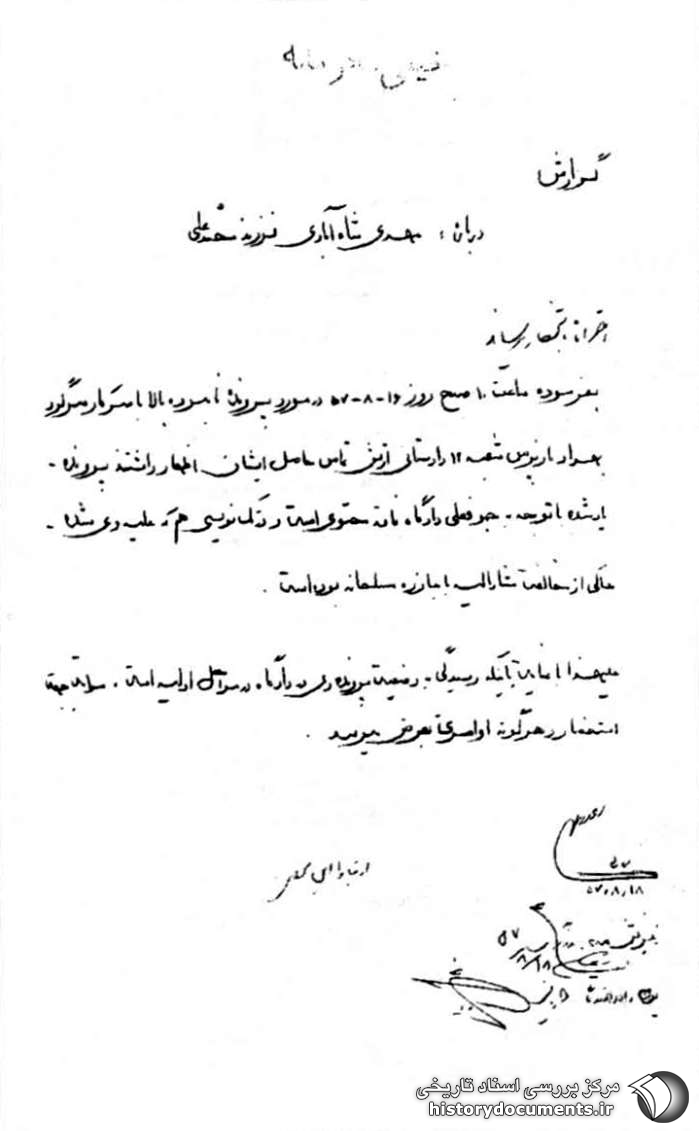 خیلی محرمانه
گزارش
درباره: مهدی شاه آبادی فرزند محمد علی
احتراماً به استحضار میرساند
بفرموده ساعت ۱۰ صبح روز ۱۶-۸-۵۷ در مورد پرونده نامبرده بالا با سرکار سرگرد
بهداد بازپرس شعبه ۱۲ دادستانی ارتش تماس حاصل ایشان اظهار داشتند پرونده
یاد شده با توجه به جو فعلی دادگاه فاقد محتوی است و تک نویسی هم که علیه وی شده
حاکی از مخالفت مشارالیه با مبارزه مسلحانه بوده است.
علیهذا با عنایت باینکه رسیدگی به وضعیت پرونده وی در دادگاه در مراحل اولیه است. مراتب جهت
استحضار و هرگونه اوامر عالی بعرض میرسد.
۵۷،۸،۱۸
۵۷
۸/۱۸
مرکز بررسی اسناد تاریخی
historydocuments.ir